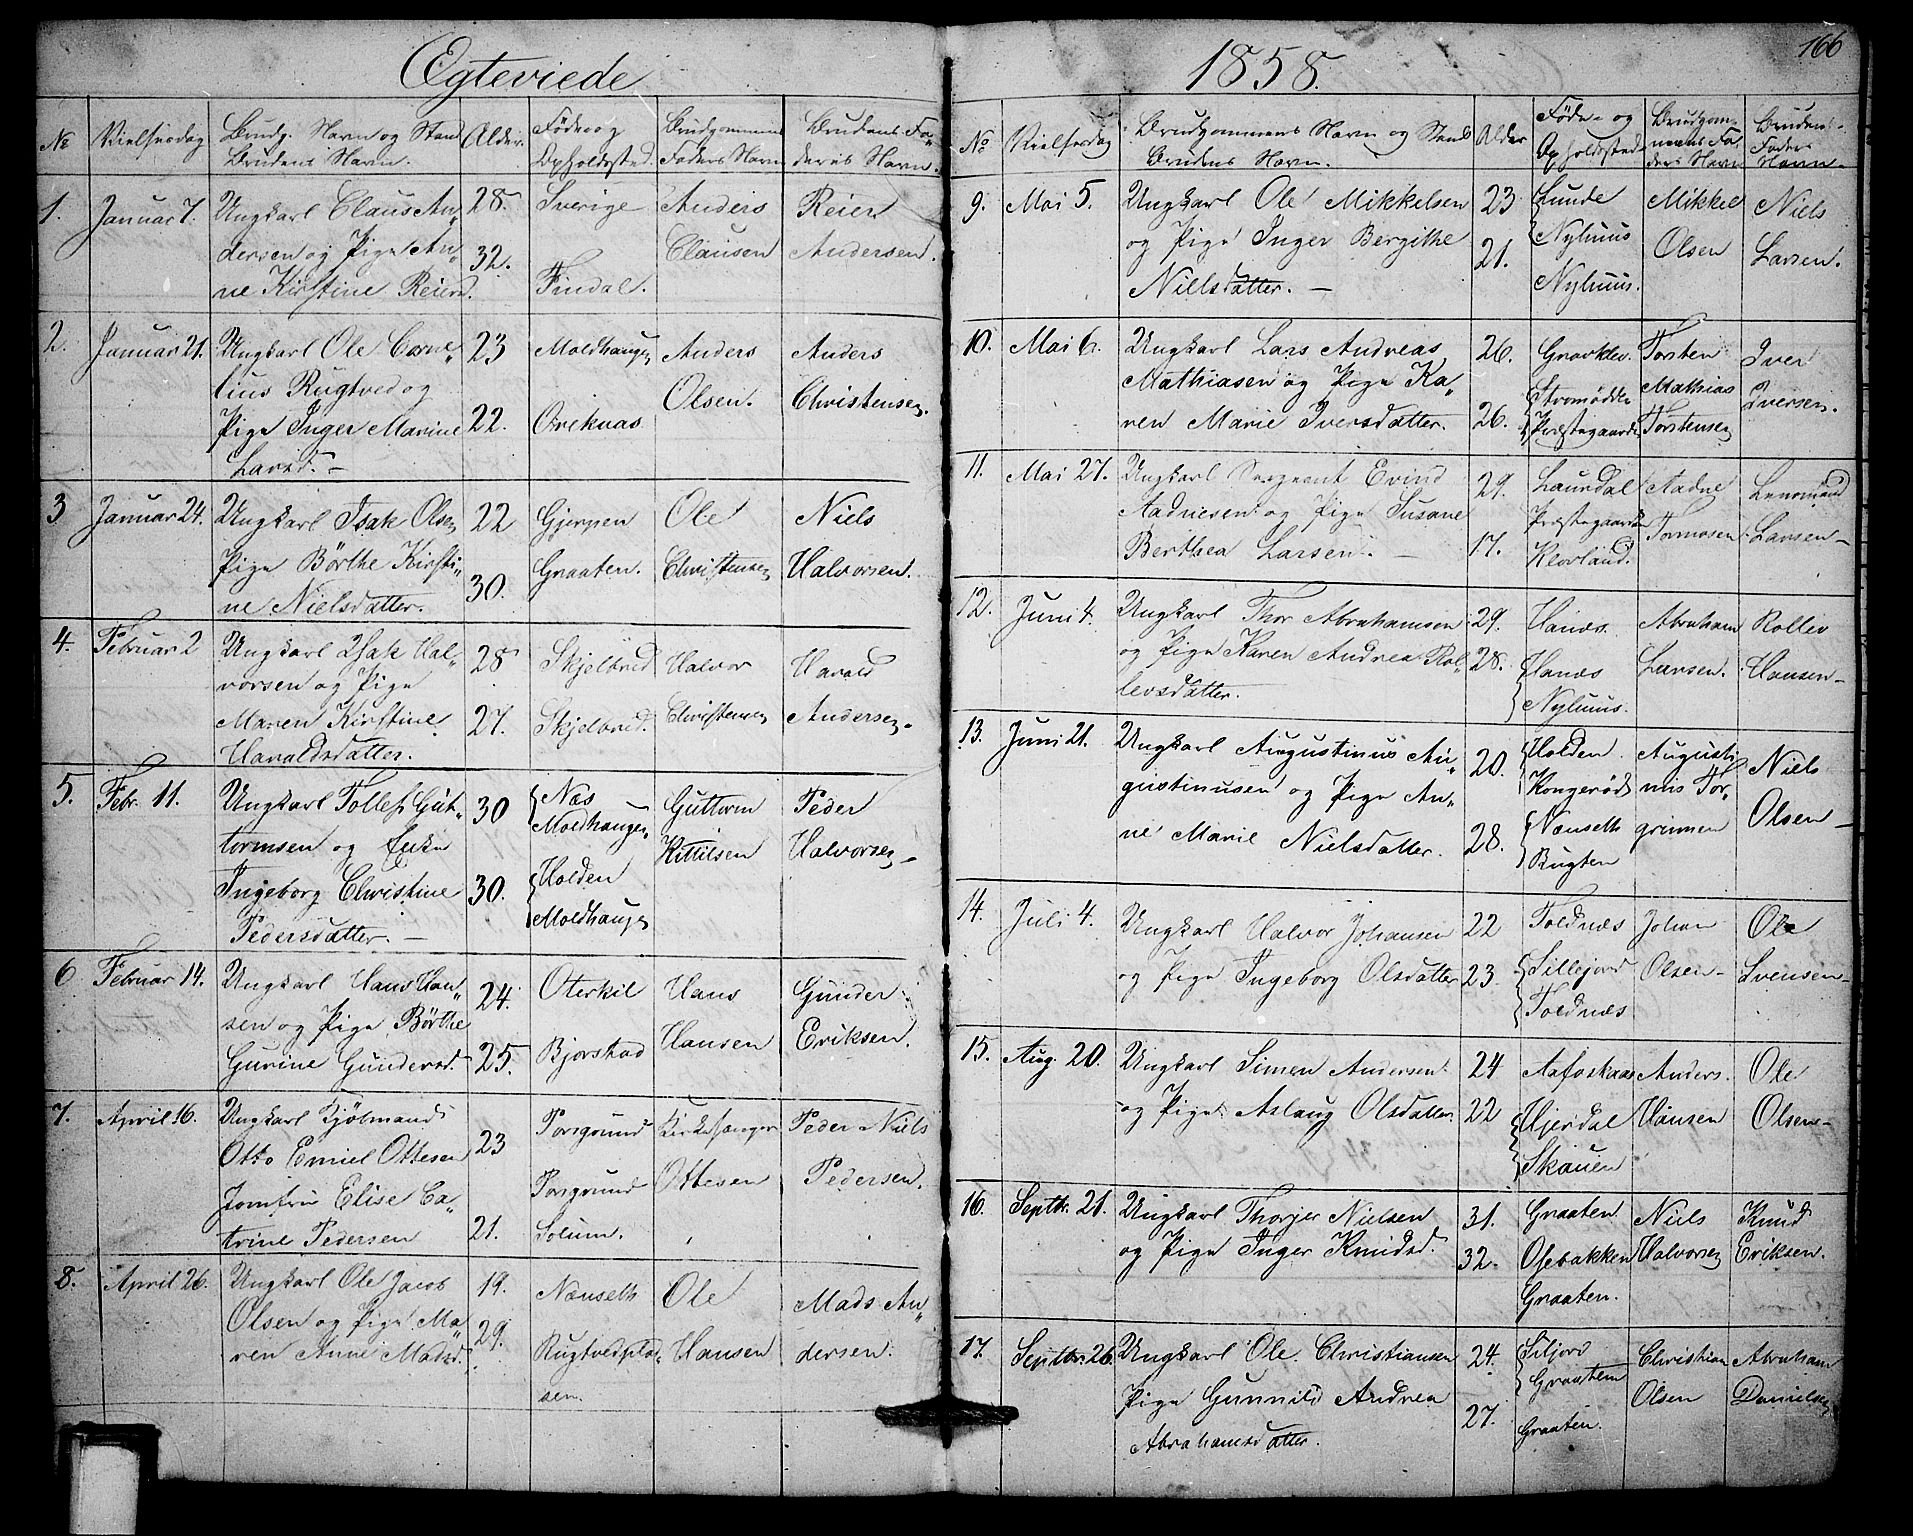 Egteviede
No
Vielsesdag
Brudg. Navn og Stand
Brudens Navn.
Alder.
Føde og
Opholdssted.
Brudgommens
Faders Navn
Brudens Fa-
ders Navn.
1. Januar 7.
Ungkarl Claus An-
dersen og Pige An-
ne Kirstine Reiersd.
28.
32.
Sverige
Findal.
Anders
Clausen
Reier
Andersen.
2. Januar 21.
Ungkarl Ole Corne-
lius Rugtved og
Pige Inger Marine
Larsd. –
23
22.
Moldhaugen
Anders
Olsen.
Anders
Christensen.
3 Januar 24.
Ungkarl Isak Olsen
Pige Börthe Kirsti-
ne Nielsdatter.
22
30.
Gjerpen
Graaten.
Ole
Christensen
Niels
Halvorsen.
4. Februar 2
Ungkarl Isak Hal-
vorsen og Pige
Maren Kirstine
Haraldsdatter.
28
27.
Skjelbred
Skjelbred.
Halvor
Christensen
Harald
Andersen.
5. Febr. 11.
Ungkarl Tollef Gut-
tormsen og Enke
Ingeborg Christine
Pedersdatter. –
30
30.
Næs
Moldhaugen
Holden
Moldhaugen
Guttorm
Kittilsen
Peder
Halvorsen
6 Februar 14.
Ungkarl Hans Han-
sen og Pige Börthe
Gurine Gundersd.
24.
25.
Oterkil
Bjorstad
Hans
Hansen
Gunder
Eriksen.
7. April 16.
Ungkarl Kjöbmand
Otto Emiel Ottesen
Jomfru Elise Ca-
trine Pedersen
23
21.
Porsgrund
Porsgrund
Solum.
Kirkesanger
Ottesen
Peder Niels
Pedersen.
8. April 26.
Ungkarl Ole Jacob
Olsen og Pige Ma-
ren Anne Madsd.
19.
29.
Nenseth
Rugtvedplad-
sen.
Ole
Hansen
Mads An-
dersen.
1858.
166
No
Vielsesdag
Brudgommens Navn og Stand
Brudens Navn.
Alder
Føde- og
Opholdssted
Brudgom-
mens Fa-
ders Navn
Brudens
Faders
Navn
9. Mai 5.
Ungkarl Ole Mikkelsen
og Pige Inger Bergithe
Nielsdatter. –
23
21.
Lunde
Nyhuus
Nyhuus.
Mikkel
Olsen
Niels
Larsen.
10. Mai 6.
Ungkarl Lars Andreas
Mathiasen og Pige Ka-
ren Marie Iversdatter.
26.
26.
Gravklev
Stromödden
Præstegaarden
Torsten
Mathias
Torstensen
Iver
Iversen.
11. Mai 27.
Ungkarl Sergeant Evind
Aadnesen og Pige Susane
Berthea Larsen. –
29.
17.
Laurdal
Præstegaarden
Klovland.
Aadne
Tormosen
Lensmand
Larsen –
12. Juni 4.
Ungkarl Thor Abrahamsen
og Pige Karen Andrea Rol-
levsdatter.
29.
28.
Hanes
Hanes
Nyhuus.
Abraham
Larsen.
Rollev
Hansen –
13. Juni 21.
Ungkarl Augustinus Au-
gustinusen og Pige An-
ne Marie Nielsdatter.
20.
28.
Holden
Kongerød
Nænseth
Bugten
Augusti-
nus Tor-
grimsen
Niels
Olsen –
14. Juli 4.
Ungkarl Halvor Johansen
og Pige Ingeborg Olsdatter
22
23.
Toldnæs
Sillejord
Toldnæs
Johan
Olsen –
Ole
Svensen –
15. Aug. 20.
Ungkarl Simen Andersen
og Pige Aslaug Olsdatter.
24
22
Aafoskaas
Hjerdal
Skauen
Anders.
Hansen
Ole
Olsen –
16. Septbr. 21.
Ungkarl Thorjer Nielsen
og Pige Inger Knudsd.
31.
32.
Graaten
Osebakken
Graaten.
Niels
Halvorsen
Knud
Eriksen.
17. Septbr. 26
Ungkarl Ole Christiansen
Pige Gunnild Andrea
Abrahamsdatter.
24.
27.
Siljord
Graaten
Graaten.
Christian
Olsen
Abraham
Danielsen